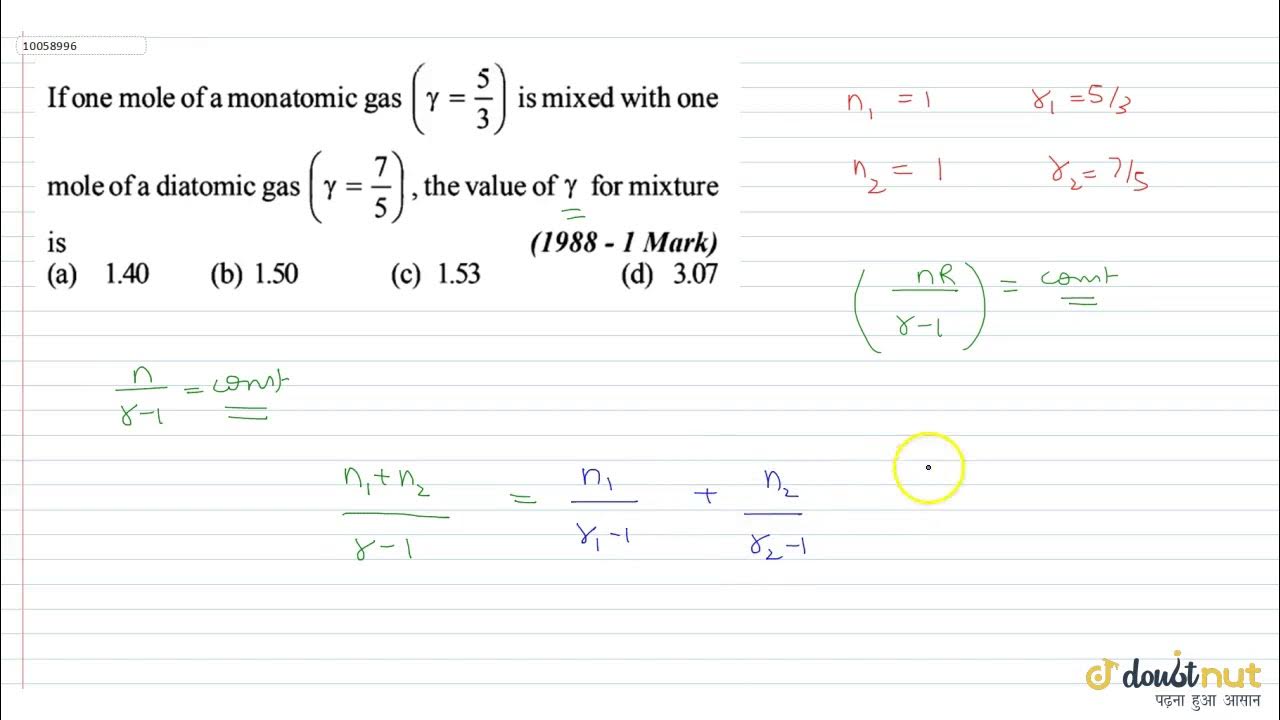 10058996
If one mole of a monatomic gas (γ = 5/3) is mixed with one
mole of a diatomic gas (γ = 7/5), the value of γ for mixture
is (1988 - 1 Mark)
(a) 1.40 (b) 1.50 (c) 1.53 (d) 3.07
n₁ = 1 γ₁ = 5/3
n₂ = 1 γ₂ = 7/5
(nR/γ-1) = const
n/γ-1 = const
n₁+n₂/γ-1 = n₁/γ₁-1 + n₂/γ₂-1
doubtnut
पढ़ना हुआ आसान